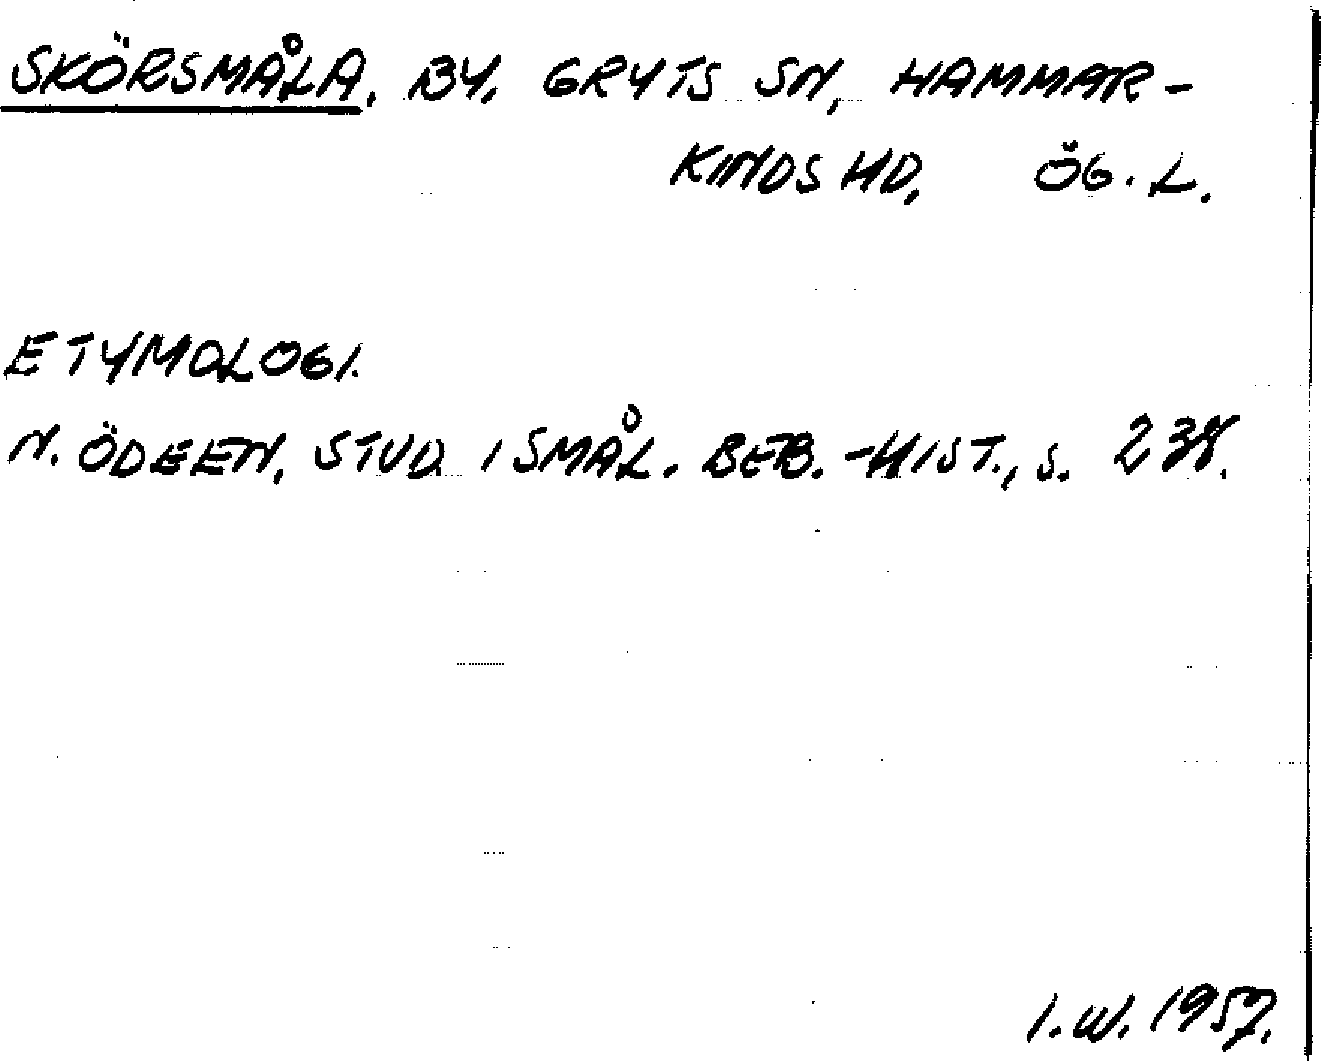 SKÖRSMÅLA, BY, GRYTS SN, HAMMAR-
KINDS HD, ÖG. L.
ETYMOLOGI.
N. ÖDEEN, STUD. I SMÅL. BEB.-HIST., S. 238.
I.W. 1957.